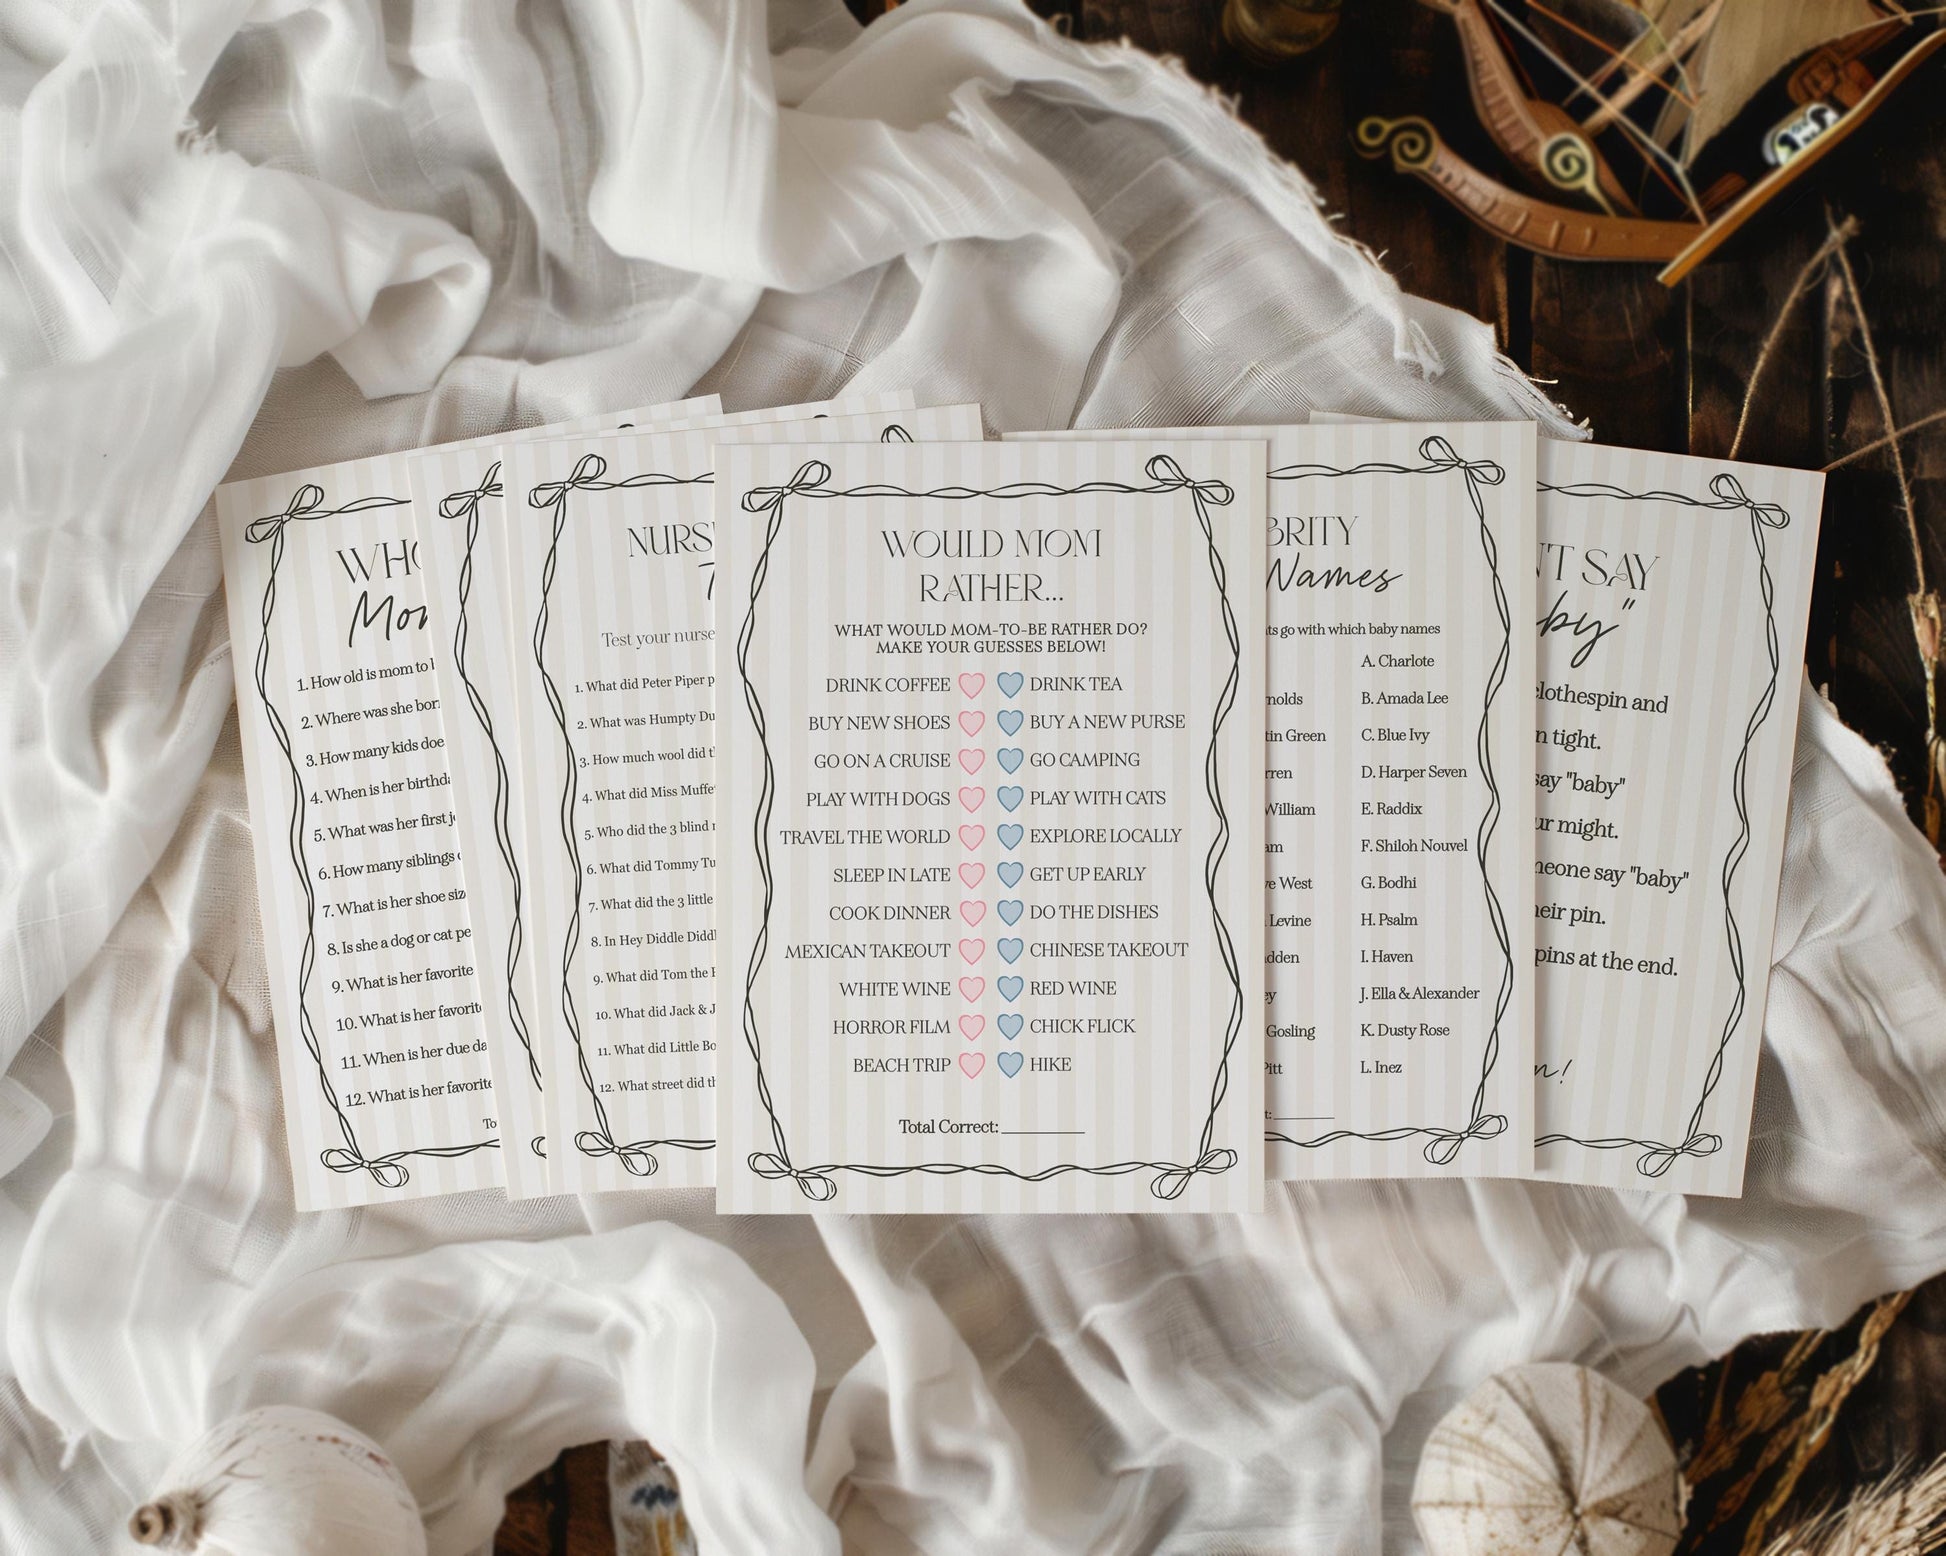 WHO
Mom
1. How old is mom to
2. Where was she born
3. How many kids does
4. When is her
5. What was her first
6. How many siblings
7. What is her shoe size
8. Is she a dog or cat
9. What is her favorite
10. What is her favorite
11. When is her due
12. What is her favorite
To
NURS
T
Test your nurse
1. What did Peter Piper p
2. What was Humpty Du
3. How much wool did t
4. What did Miss Muffe
5. Who did the 3 blind
6. What did Tommy Tu
7. What did the 3 little
8. In Hey Diddle Diddl
9. What did Tom the
10. What did Jack & J
11. What did Little Bo
12. What street did th
WOULD MOM
RATHER...
WHAT WOULD MOM-TO-BE RATHER DO?
MAKE YOUR GUESSES BELOW!
DRINK COFFEE DRINK TEA
BUY NEW SHOES BUY A NEW PURSE
GO ON A CRUISE GO CAMPING
PLAY WITH DOGS PLAY WITH CATS
TRAVEL THE WORLD EXPLORE LOCALLY
SLEEP IN LATE GET UP EARLY
COOK DINNER DO THE DISHES
MEXICAN TAKEOUT CHINESE TAKEOUT
WHITE WINE RED WINE
HORROR FILM CHICK FLICK
BEACH TRIP HIKE
Total Correct:
BRITY
Names
ts go with which baby names
A. Charlote
nolds B. Amada Lee
tin Green C. Blue Ivy
rren D. Harper Seven
William E. Raddix
am F. Shiloh Nouvel
ye West G. Bodhi
Levine H. Psalm
dden I. Haven
ey J. Ella & Alexander
Gosling K. Dusty Rose
Pitt L. Inez
t:
'T SAY
by"
clothespin and
n tight.
say "baby"
ur might.
meone say "baby"
heir pin.
pins at the end.
n!